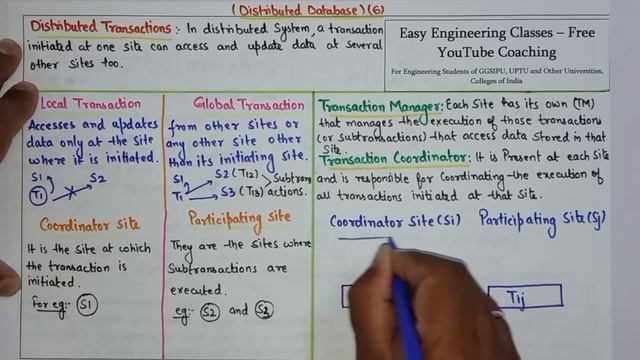 (Distributed Database) (6)
Distributed Transactions:- In distributed System, a transaction
initiated at one site can access and update data at several
other sites too.
Easy Engineering Classes – Free
YouTube Coaching
For Engineering Students of GGSIPU, UPTU and Other Universities,
Colleges of India
Local Transaction
Accesses and updates
data only at the site
where it is initiated.
S1 S2
T1
Global Transaction
from other sites or
any other site other
than its initiating site.
S1 S2 (T12)
T1 S3 (T13) actions.
Subtrans
Transaction Manager: Each Site has its own (TM)
that manages the execution of those transactions
(or subtransactions) that access data stored in that
site.
Transaction Coordinator: It is Present at each Site
and is responsible for Coordinating the execution of
all transactions initiated at that Site.
Coordinator site
It is the Site at which
the transaction is
initiated.
for eg:- S1
Participating site
They are the sites where
Subtransactions are
executed.
eg:- S2 and S3
Coordinator Site (Si) Participating Site (Sj)
Tij